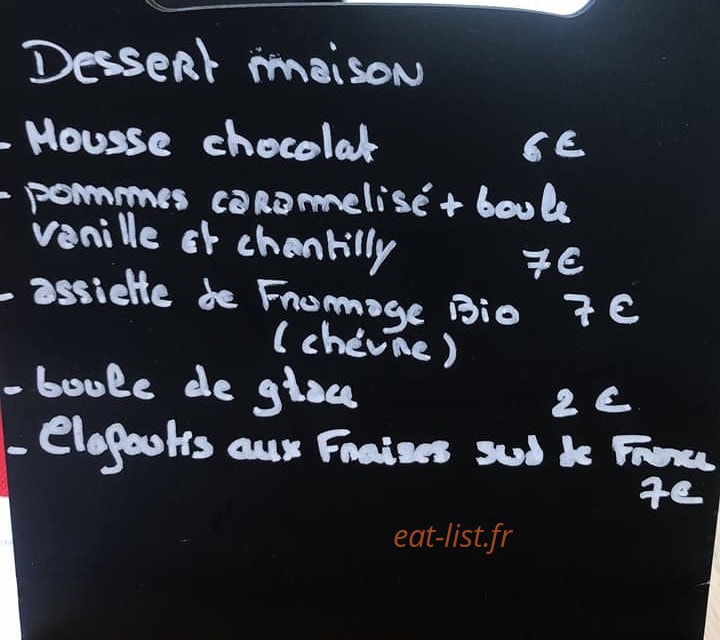 Dessert maison
- Mousse chocolat 6 €
- pommes caramelisé + boule
vanille et chantilly 7 €
- assiette de Fromage Bio 7 €
(chévre)
- boule de glace 2 €
- Clafoutis aux Fraises sud de France
7 €
eat-list.fr